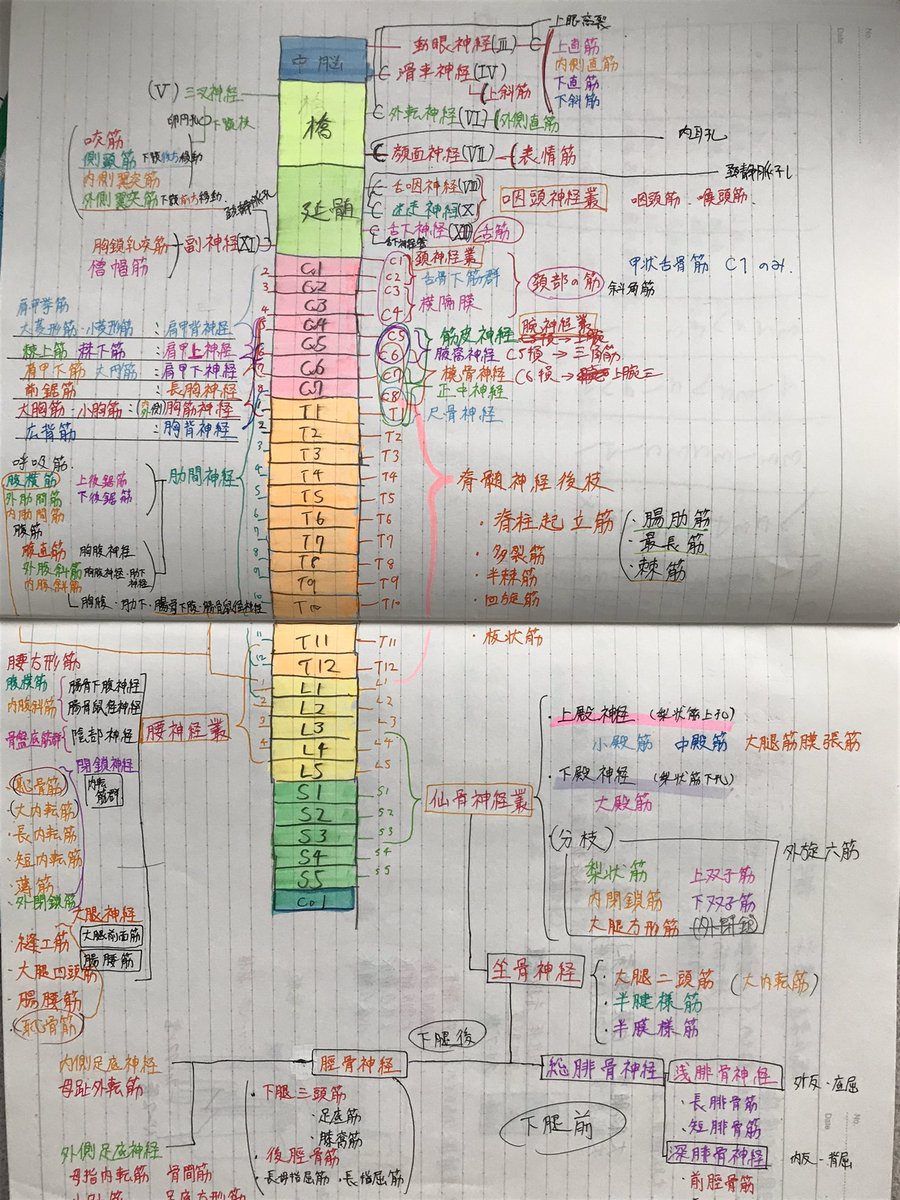 中脳
動眼神経(Ⅲ)
上直筋
内側直筋
下直筋
下斜筋
滑車神経(Ⅳ)
上斜筋
外転神経(Ⅵ)
外側直筋
(Ⅴ)三叉神経
卵円孔 下顎枝
橋
咬筋
側頭筋 下顎後方移動
内側翼突筋
外側翼突筋 下顎前方移動
内耳孔
顔面神経(Ⅶ)
表情筋
延髄
舌咽神経
迷走神経(Ⅹ)
咽頭神経叢
咽頭筋 喉頭筋
舌下神経(Ⅻ) 舌筋
舌下神経管
胸鎖乳突筋
僧帽筋
副神経(Ⅺ)
C1
C2
C3
C4
頚神経叢
舌骨下筋群
横隔膜
頚部の筋
甲状舌骨筋 C1のみ.
斜角筋
肩甲挙筋
大菱形筋・小菱形筋:肩甲背神経
棘上筋 棘下筋:肩甲上神経
肩甲下筋 大円筋:肩甲下神経
前鋸筋:長胸神経
大胸筋・小胸筋:(内外側)胸筋神経
広背筋:胸背神経
腕神経叢
C5
C6
C7
C8
T1
筋皮神経
腋窩神経 C5損→三角筋
橈骨神経 C6損→上腕三
正中神経
尺骨神経
T1
T2
T3
T4
T5
T6
T7
T8
T9
T10
T2
T3
T4
T5
T6
T7
T8
T9
T10
呼吸筋
腹横筋
外肋間筋
内肋間筋
上後鋸筋
下後鋸筋
肋間神経
腹筋
腹直筋 胸腹神経
外腹斜筋 胸腹神経・肋下神経
内腹斜筋
胸腹・肋下・腸骨下腹・腸骨鼠径神経
脊髄神経後枝
・脊柱起立筋
・腸肋筋
・最長筋
・棘筋
・多裂筋
・半棘筋
・回旋筋
・板状筋
T11
T12
L1
L2
L3
L4
L5
S1
S2
S3
S4
S5
Co1
T11
T12
L1
L2
L3
L4
L5
S1
S2
S3
S4
S5
腰方形筋
腹横筋
内腹斜筋
腸骨下腹神経
腸骨鼠径神経
骨盤底筋群
陰部神経
腰神経叢
閉鎖神経
内転筋群
恥骨筋
(大内転筋)
・長内転筋
・短内転筋
・薄筋
・外閉鎖筋
大腿神経
大腿前面筋
腸腰筋
・縫工筋
・大腿四頭筋
・腸腰筋
・恥骨筋
仙骨神経叢
・上殿神経(梨状筋上孔)
小殿筋 中殿筋 大腿筋膜張筋
・下殿神経(梨状筋下孔)
大殿筋
(分枝)
外旋六筋
梨状筋 上双子筋
内閉鎖筋 下双子筋
大腿方形筋 (外閉鎖)
坐骨神経
・大腿二頭筋(大内転筋)
・半腱様筋
・半膜様筋
下腿後
脛骨神経
総腓骨神経
浅腓骨神経
外反・底屈
・長腓骨筋
・短腓骨筋
下腿前
深腓骨神経
内反・背屈
・前脛骨筋
内側足底神経
母趾外転筋
外側足底神経
母指内転筋 骨間筋
足底方形筋
・下腿三頭筋
・足底筋
・膝窩筋
・後脛骨筋
・長母指屈筋・長指屈筋